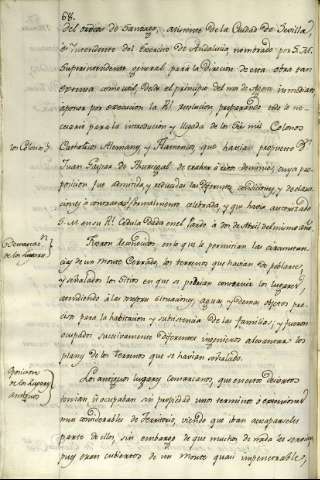 68.
del orden de Santiago, asistente de la Ciudad de Sevilla,
è Intendente del Exercito de Andalucia, nombrado por S. M.
Superintendente general para la Direccion de esta obra tan
extensa como util, desde el principio del mes de Agosto inmediato
aponer por execucion la Rl. resolucion, preparando todo lo ne-
cesario para la introducion y llegada de los seis mil Colonos
los Colonos
Catholicos Alemanes y Flamencos, que havian propuesto Dn.
Juan Gaspar de Thurriegel de traher à estos dominios, cuya pro-
posicion fue admitida, y reducidas las diferentes condiciones, y declara-
ciones à contrata formalmente celebrada, y que havia autorizado
S. M. en su Rl. Cedula dada en el Pardo à dos de Abril del mismo año.
Demarcan.
de los lugares
Fueron reconocidos en lo que le permitian las circunstan-
cias de un Monte Cerrado, los terrenos que havian de poblarse,
y señalados los sitios en que se podian construir los lugares,
atendiendo à las mejores situaciones, aguas, y demas objetos pre-
cisos para la habitacion y subsistencia de las familias, y fueron
ocupados sucesivamente diferentes ingenieros alevantar los
planos de los Terrenos que se havian señalado.
Oposicion
de los lugares
antiguos
Los antiguos lugares comarcanos, que en estos desiertos
tenian, ù ocupaban sin propiedad unos terminos ò extensiones
mui considerables de Territorio, viendo que iban a
parte de ellos, sin embargo de que muchos de nada les servian
pues eran cubiertos de un Monte quasi impenetrable,